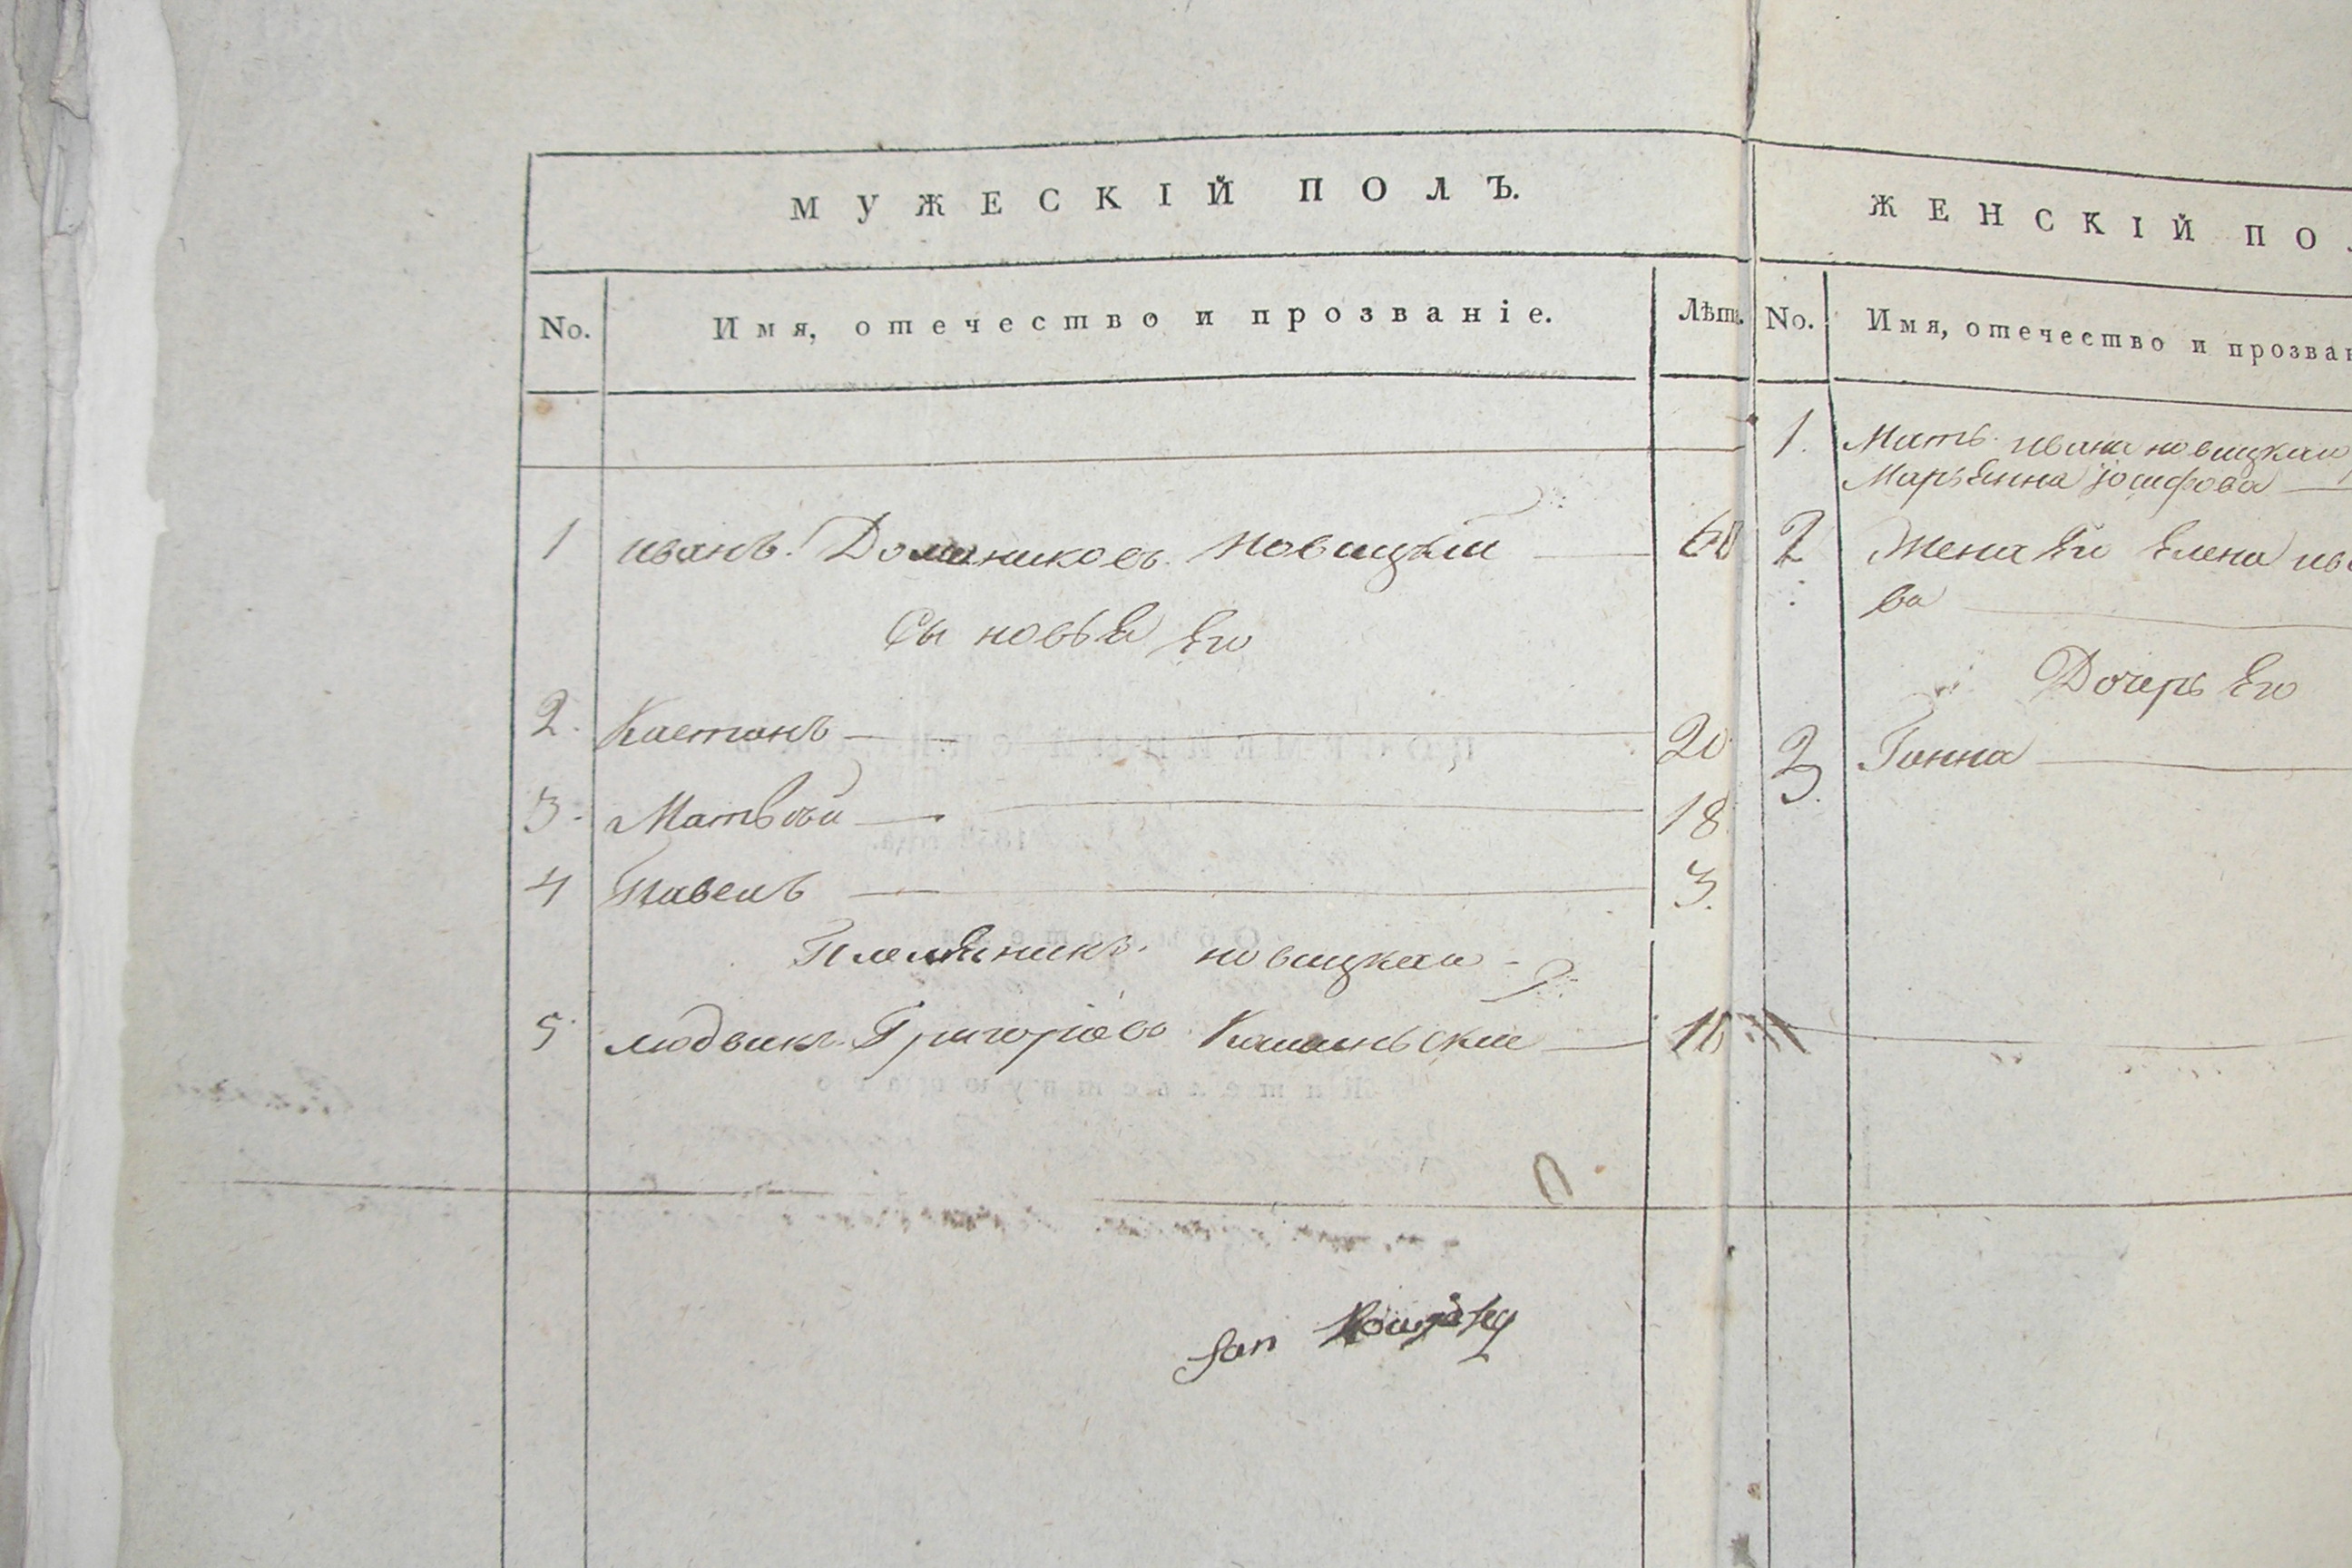 МУЖЕСКІЙ ПОЛЪ.
No. Имя, отечество и прозваніе. Лѣта.
1 иванъ Доминиковъ Новицкій 60
Сыновья Его
2. Каетанъ 20
3. Матвей 18
4 Павелъ 3.
Племяникъ новицкаи
5 людвикъ Григоріевъ 18
Jan Nowicky
ЖЕНСКІЙ ПО
No. Имя, отечество и прозван
1. Мать ивана новицкаи
Марьянна іосифова
2 Жена Его Елена ива
ва
Дочерь Его
3. Ганна